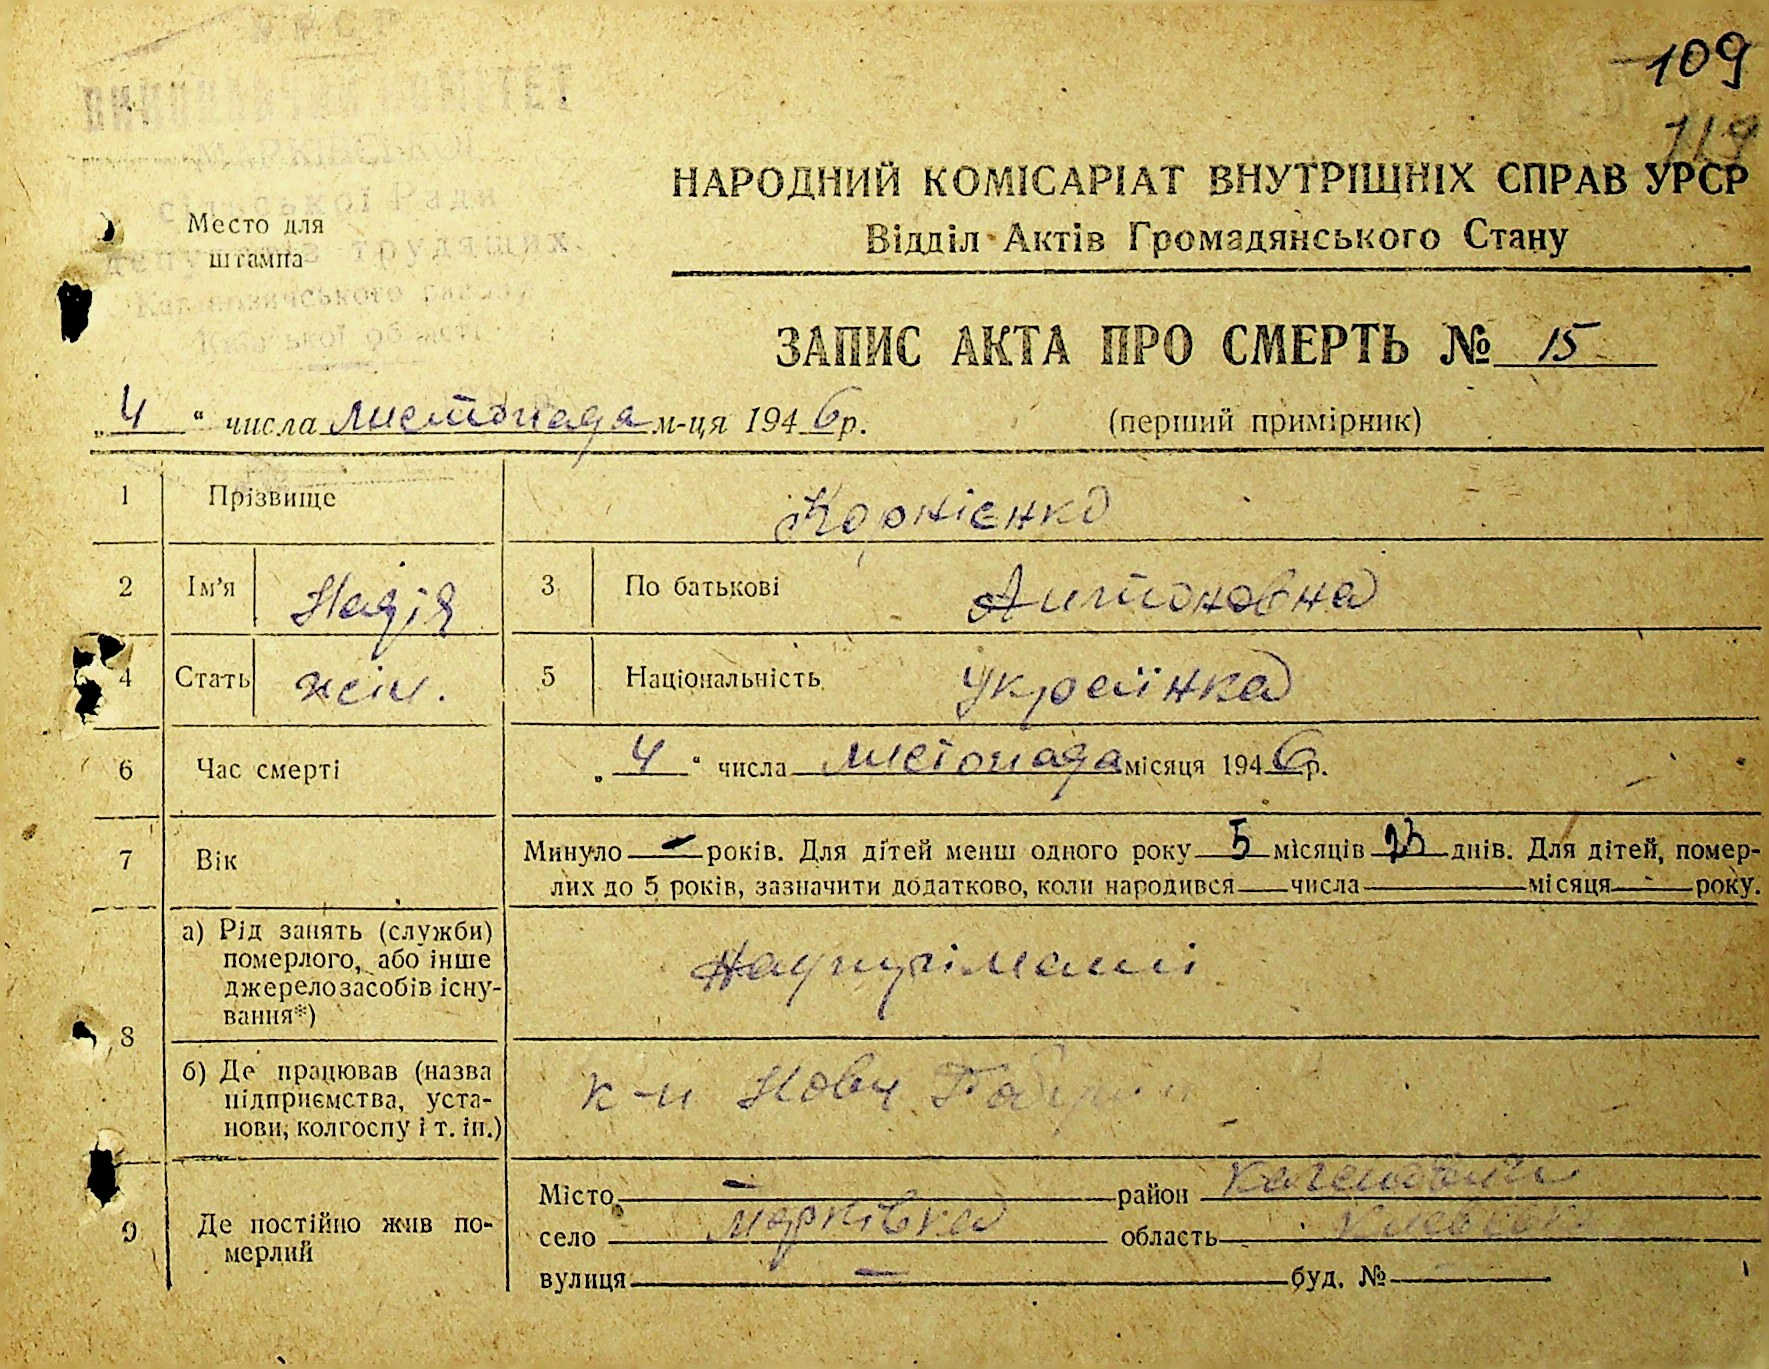 УРСР
ВИКОНАВЧИЙ КОМІТЕТ
МАРКІВСЬКОЇ
сільської Ради
депутатів трудящих
Кагановичського району
Київської області
109
119
НАРОДНИЙ КОМІСАРІАТ ВНУТРІШНІХ СПРАВ УРСР
Відділ Актів Громадянського Стану
Место для
штампа
ЗАПИС АКТА ПРО СМЕРТЬ № 15
„4“ числа листопада м-ця 1946 р. (перший примірник)
1 Прізвище Корнієнко
2 Ім’я Надія 3 По батькові Антоновна
4 Стать жін. 5 Національність Українка
6 Час смерті „4“ числа листопада місяця 1946 р.
7 Вік Минуло — років. Для дітей менш одного року 5 місяців 23 днів. Для дітей, помер-
лих до 5 років, зазначити додатково, коли народився числа місяця року.
8 а) Рід занять (служби)
померлого, або інше
джерело засобів існу-
вання*)
На утріманні
б) Де працював (назва
підприємства, уста-
нови, колгоспу і т. ін.)
к-п Нова
9 Де постійно жив по-
мерлий
Місто — район Кагановичі
село Марківка область Київська
вулиця — буд. №